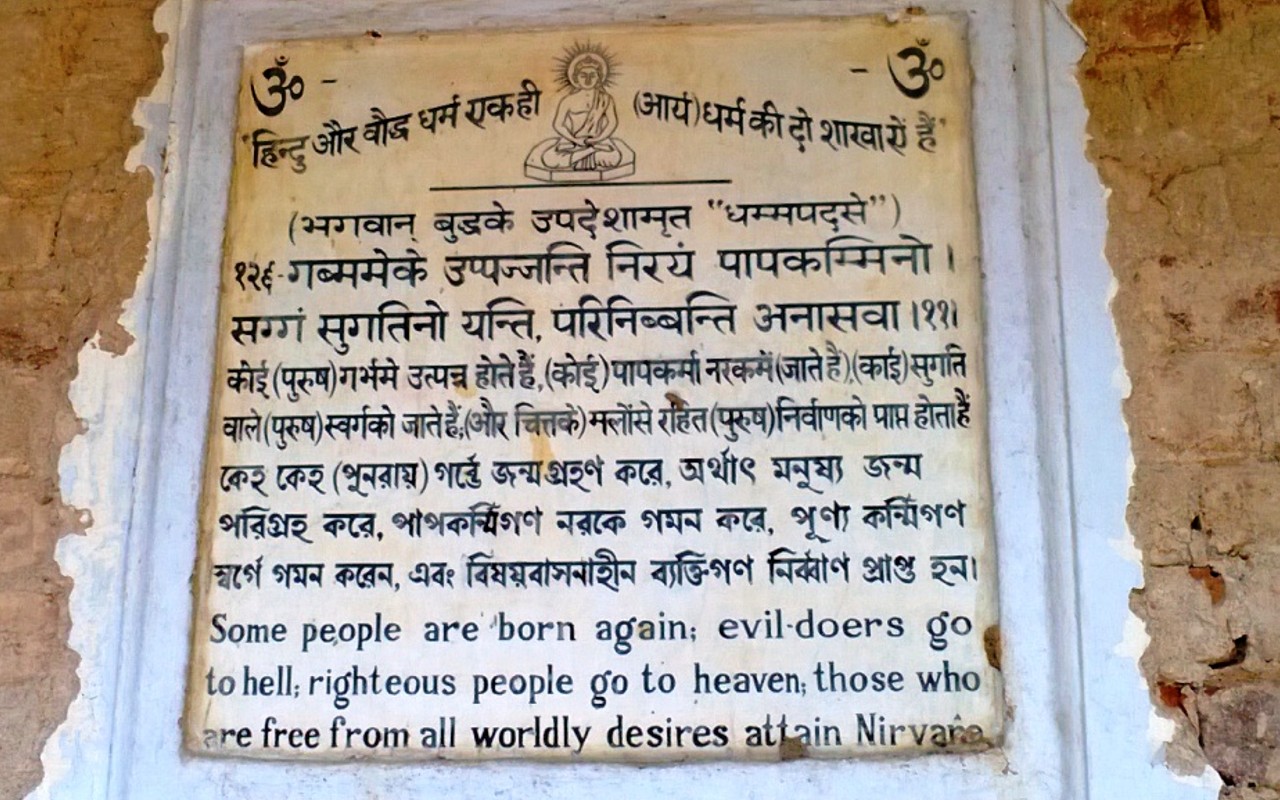 ॐ - - ॐ
"हिन्दु और वौद्ध धर्म एकही (आर्य) धर्म की दो शाखायें हैं"
(भगवान् बुद्धके उपदेशामृत "धम्मपदसे")
१२६-गब्भमेके उप्पज्जन्ति निरयं पापकम्मिनो ।
सग्गं सुगतिनो यन्ति, परिनिब्बन्ति अनासवा ।११।
कोई (पुरुष) गर्भमे उत्पन्न होते हैं, (कोई) पापकर्मा नरकमें (जाते है), (काई) सुगति
वाले (पुरुष) स्वर्गको जाते हैं; (और चित्तके) मलोंसे रहित (पुरुष) निर्वाणको प्राप्त होता हैं
কেহ কেহ (পুনরায়) গর্ব্ভে জন্ম গ্রহণ করে, অর্থাৎ মনুষ্য জন্ম
পরিগ্রহ করে, পাপকর্ম্মিগণ নরকে গমন করে, পূণ্য কর্ম্মিগণ
স্বর্গে গমন করেন, এবং বিষয়বাসনাহীন ব্যক্তিগণ নির্ব্বাণ প্রাপ্ত হন।
Some people are born again; evil-doers go
to hell; righteous people go to heaven; those who
are free from all worldly desires attain Nirvana